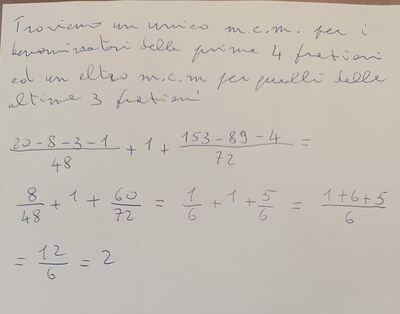 Troviamo un unico m.c.m. per i
denominatori delle prime 4 frazioni
ed un altro m.c.m per quelli delle
ultime 3 frazioni
(20-8-3-1)/48 + 1 + (153-89-4)/72 =
8/48 + 1 + 60/72 = 1/6 + 1 + 5/6 = (1+6+5)/6
= 12/6 = 2